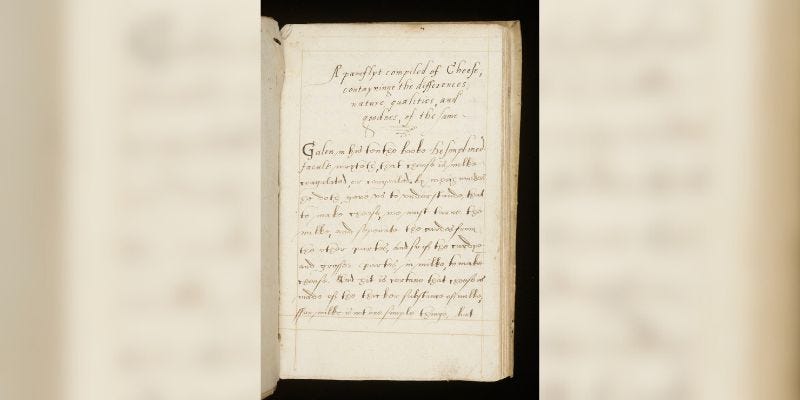 A pamflyt compiled of Cheese,
contayninge the differences,
nature, qualities, and
goodnes, of the same
Galen, in his tenthe booke de simpl: med:
facult: wrytethe, that cheese is mylke
congelated, or
he dothe geve us to understande, that
to make cheese, we must turne the
milke, and separate the cardes from
the other partes, and so of the
and grosser partes, in milke, to make
cheese. And yet is certane that cheese is
made of the thicker substance of milke,
ffor milke is not one simple thinge, but